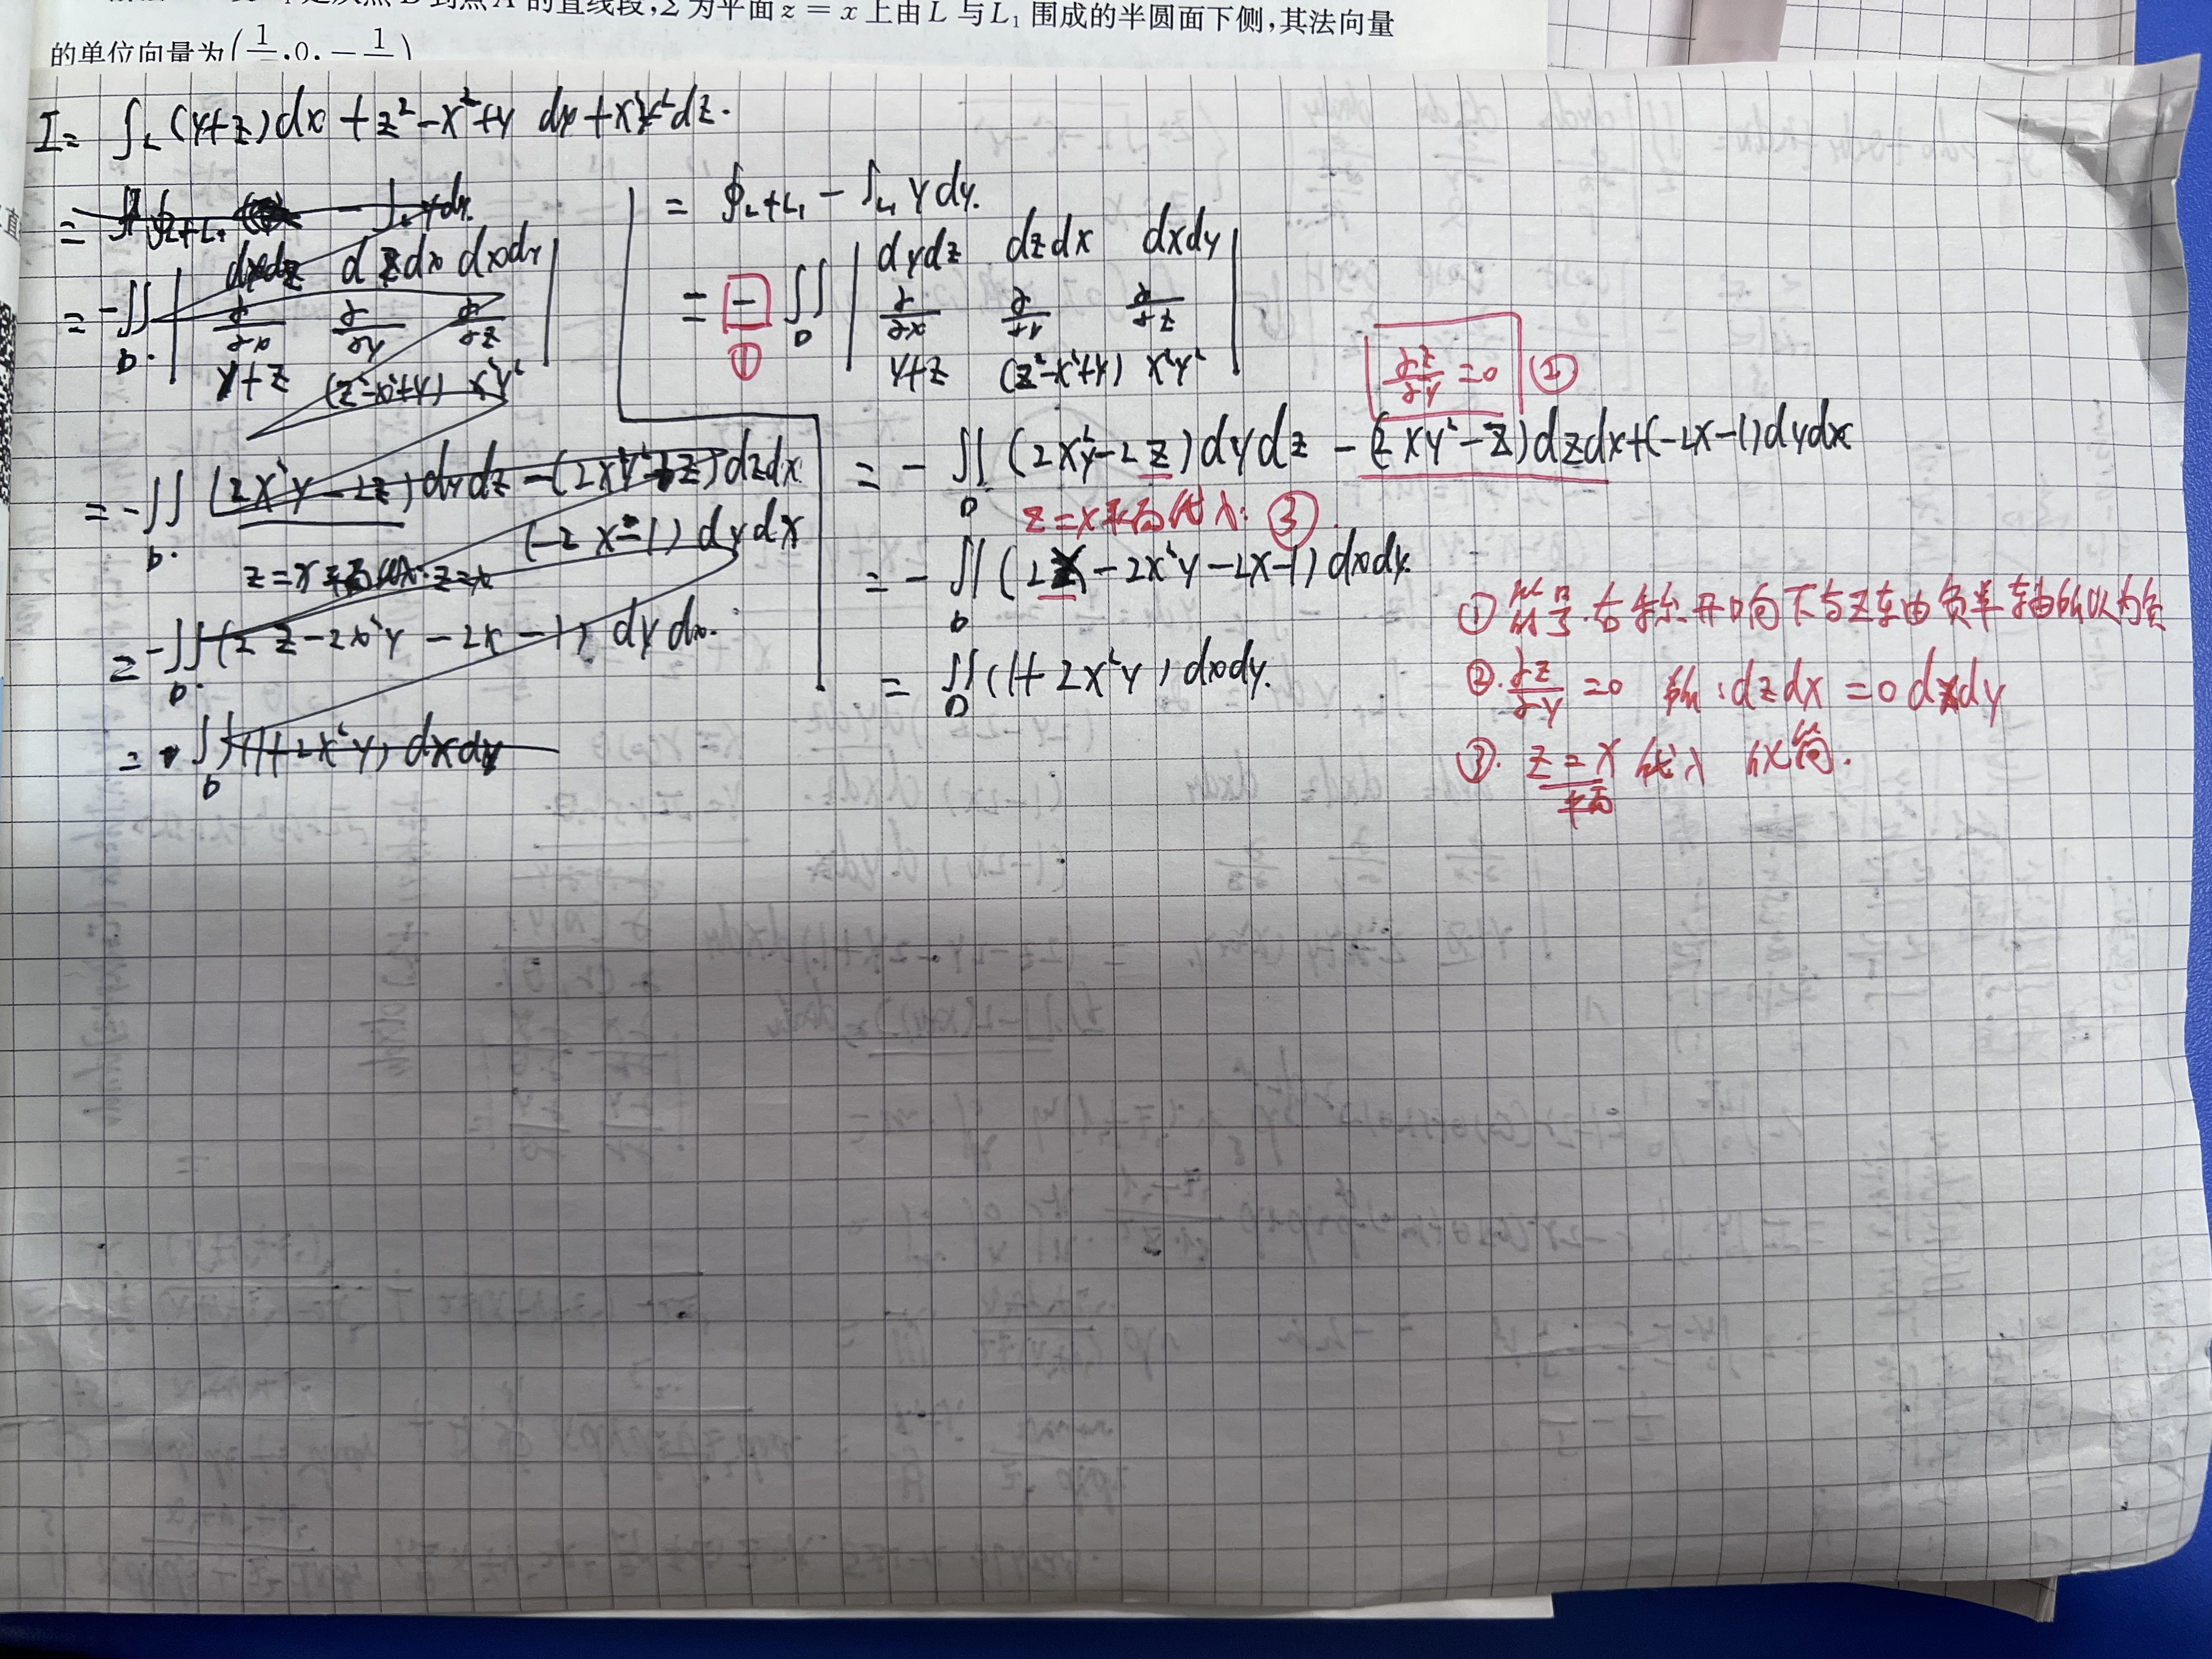 是从点 B 到点 A 的直线段,Σ 为平面 z = x 上由 L 与 L₁ 围成的半圆面下侧,其法向量
的单位向量为(1/ ,0,-1/ )
I= ∫L (y+z)dx + z²-x²+y dy + x²y²dz.
= ∮L+L₁ - ∫L₁ y dy.
= - ∬D | dydz dzdx dxdy |
∂/∂x ∂/∂y ∂/∂z
y+z (z²-x²+y) x²y²
①
∂z/∂y =0 ②
= - ∬D (2x²y-2z)dydz - (2xy²-z)dzdx+(-2x-1)dydx
z=x平面代入: ③
= - ∬D (2x-2x²y-2x-1)dxdy.
= ∬D (1+2x²y)dxdy.
-∬D. | dz dzdx dxdy |
∂/∂x ∂/∂y ∂/∂z
y+z (z²-x²+y) x²y²
= -∬D. (2x²y-2z)dydz-( )dzdx
(-2x-1)dydx
z=x平面 z=x
= -∬D. (2z-2x²y-2x-1)dydx.
= ∬D (1+2x²y)dxdy
① 右手 开口向下与z轴负半轴所以为负
②. ∂z/∂y =0 所以:dzdx =0dxdy
③. z=x 代入 化简.
平面